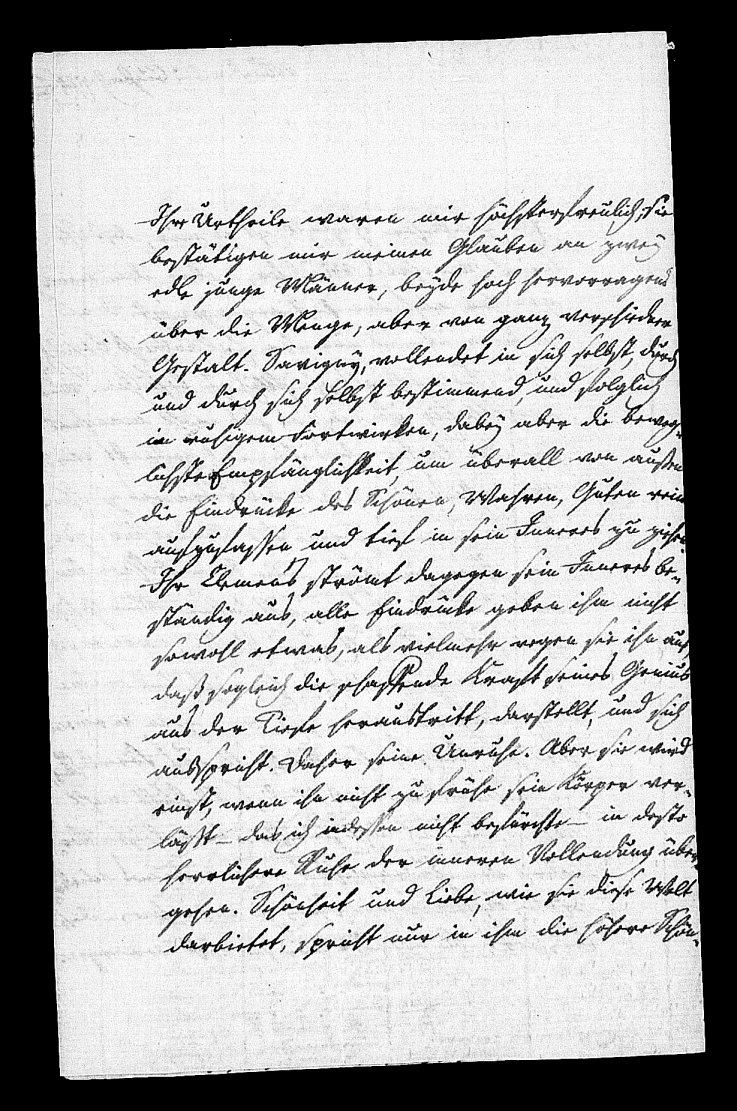 Ihre Urtheile waren mir höchsterfreulich; sie
bestätigen mir meinen Glauben an zwey
edle junge Männer, beyde hoch hervorragend
über die Menge, aber von ganz verschiedner
Gestalt. Savigny, vollendet in sich selbst, durch
und durch sich selbst bestimmend, und folglich
in ruhigem Fortwirken, dabey aber die beweg-
lichste Empfänglichkeit, um überall von außen
die Eindrücke des Schönen, Wahren, Guten rein
aufzufassen, und tief in sein Inneres zu ziehen.
Ihr Clemens strömt dagegen sein Inneres be-
ständig aus, alle Eindrücke geben ihm nicht
sowohl etwas, als vielmehr regen sie ihn auf,
daß sogleich die schaffende Kraft seines Genius
aus der Tiefe heraustritt, darstellt, und sich
ausspricht. Daher seine Unruhe. Aber sie wird
einst, wenn ihn nicht zu frühe sein Körper ver-
läßt – das ich indessen nicht befürchte – in desto
herrlichere Ruhe der inneren Vollendung über-
gehen. Schönheit und Liebe, wie sie diese Welt
darbietet, spricht nur in ihm die höhere Schön-